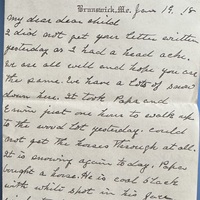 Brunswick, Me., Jan 19, 18
My dear dear child
I did not get your letter written
yesterday as I had a head ache.
We are all well and hope you are
the same. We have a lots of snow
down here. It took Papa and
Erwin just one hour to walk up
to the wood lot yesterday. Could
not get the horses through at all.
It is snowing again to day. Papa
bought a horse. He is coal black
with white spot in his face